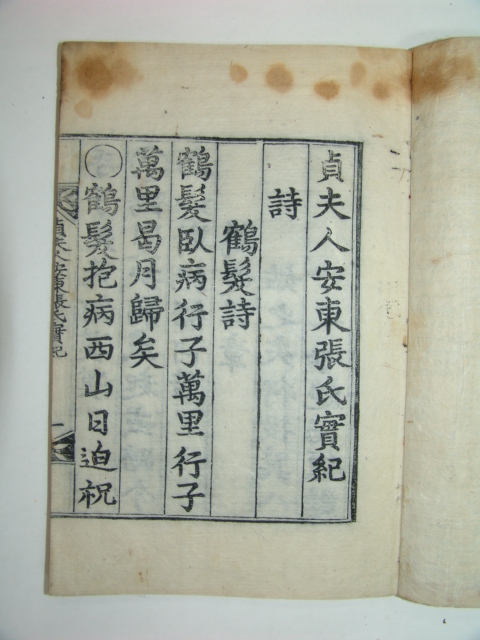 貞夫人安東張氏實紀
詩
鶴髮詩
鶴髮臥病行子萬里行子
萬里曷月歸矣
○鶴髮抱病西山日迫祝
貞夫人安東張氏實紀 一